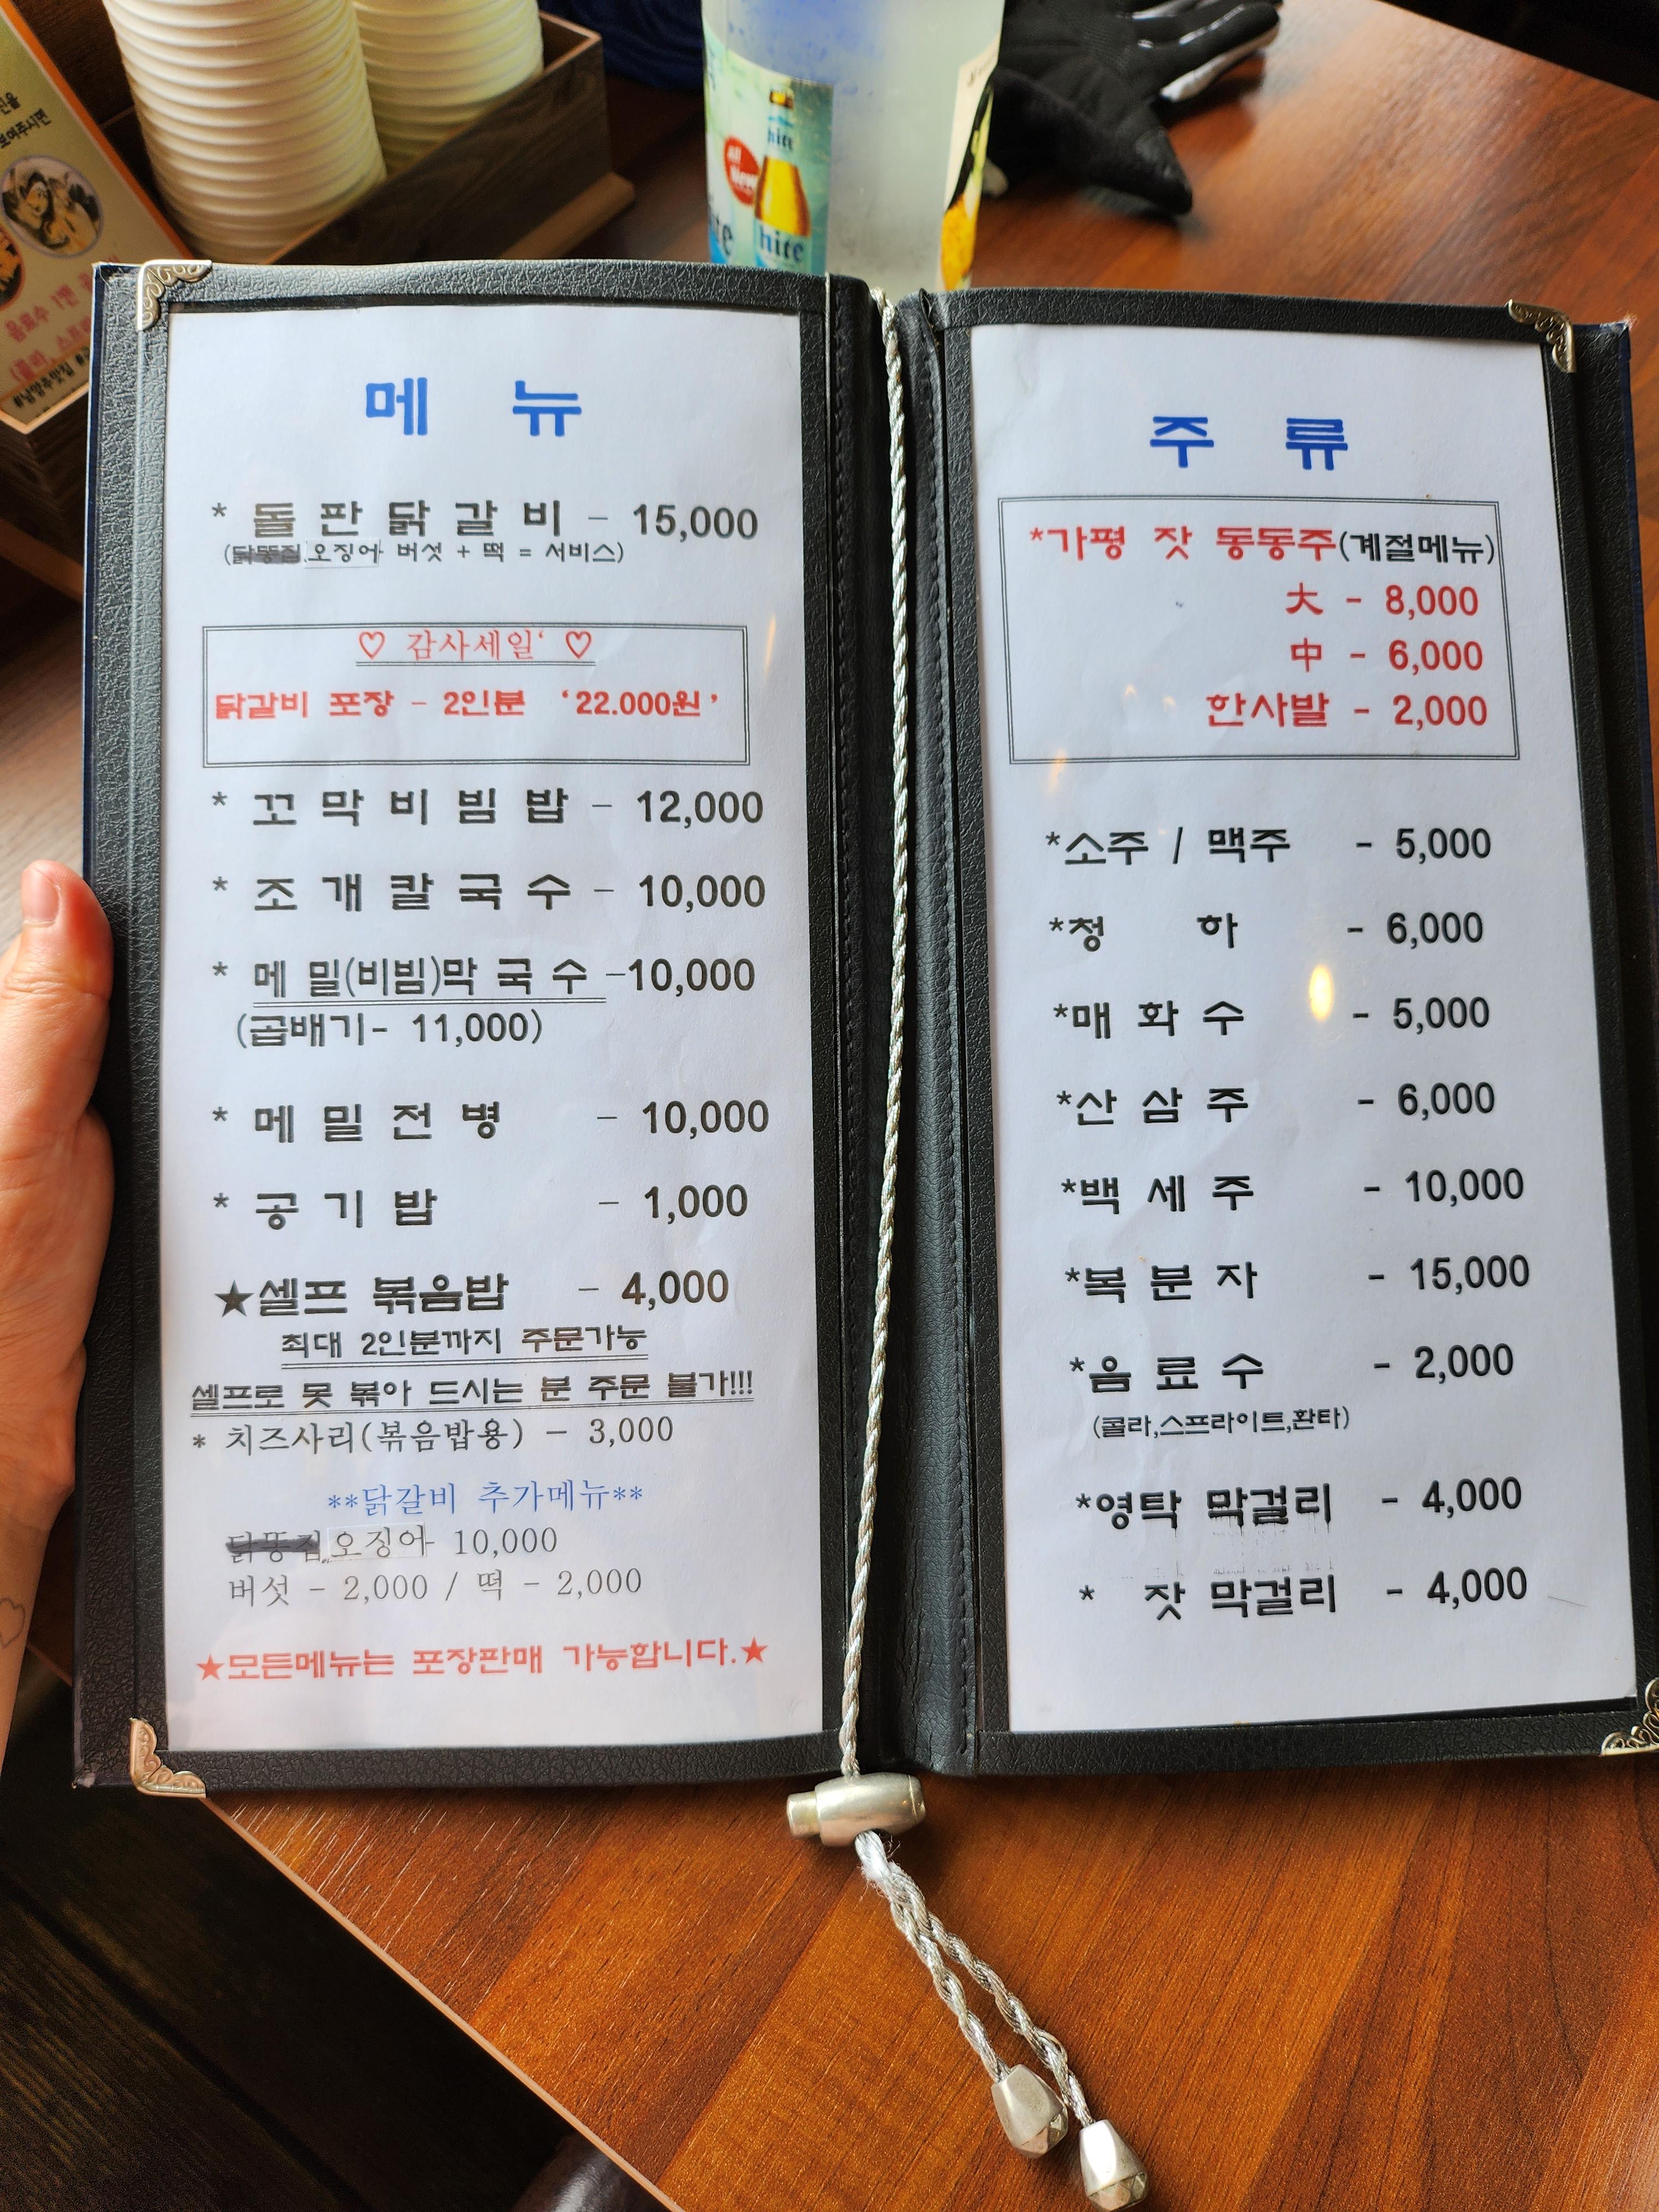 메 뉴
* 돌 판 닭 갈 비 - 15,000
(닭똥집,오징어 버섯 + 떡 = 서비스)
♡ 감사세일‘ ♡
닭갈비 포장 - 2인분 ‘22.000원’
* 꼬 막 비 빔 밥 - 12,000
* 조 개 칼 국 수 - 10,000
* 메 밀(비빔)막 국 수 -10,000
(곱배기- 11,000)
* 메 밀 전 병 - 10,000
* 공 기 밥 - 1,000
★셀프 볶음밥 - 4,000
최대 2인분까지 주문가능
셀프로 못 볶아 드시는 분 주문 불가!!!
* 치즈사리(볶음밥용) - 3,000
**닭갈비 추가메뉴**
닭똥집,오징어- 10,000
버섯 - 2,000 / 떡 - 2,000
★모든메뉴는 포장판매 가능합니다.★
주 류
*가평 잣 동동주(계절메뉴)
大 - 8,000
中 - 6,000
한사발 - 2,000
*소주 / 맥주 - 5,000
*청 하 - 6,000
*매 화 수 - 5,000
*산 삼 주 - 6,000
*백 세 주 - 10,000
*복 분 자 - 15,000
*음 료 수 - 2,000
(콜라,스프라이트,환타)
*영탁 막걸리 - 4,000
* 잣 막걸리 - 4,000
hite
All New
hite
보여주시면
음료수 1캔
#남양주맛집